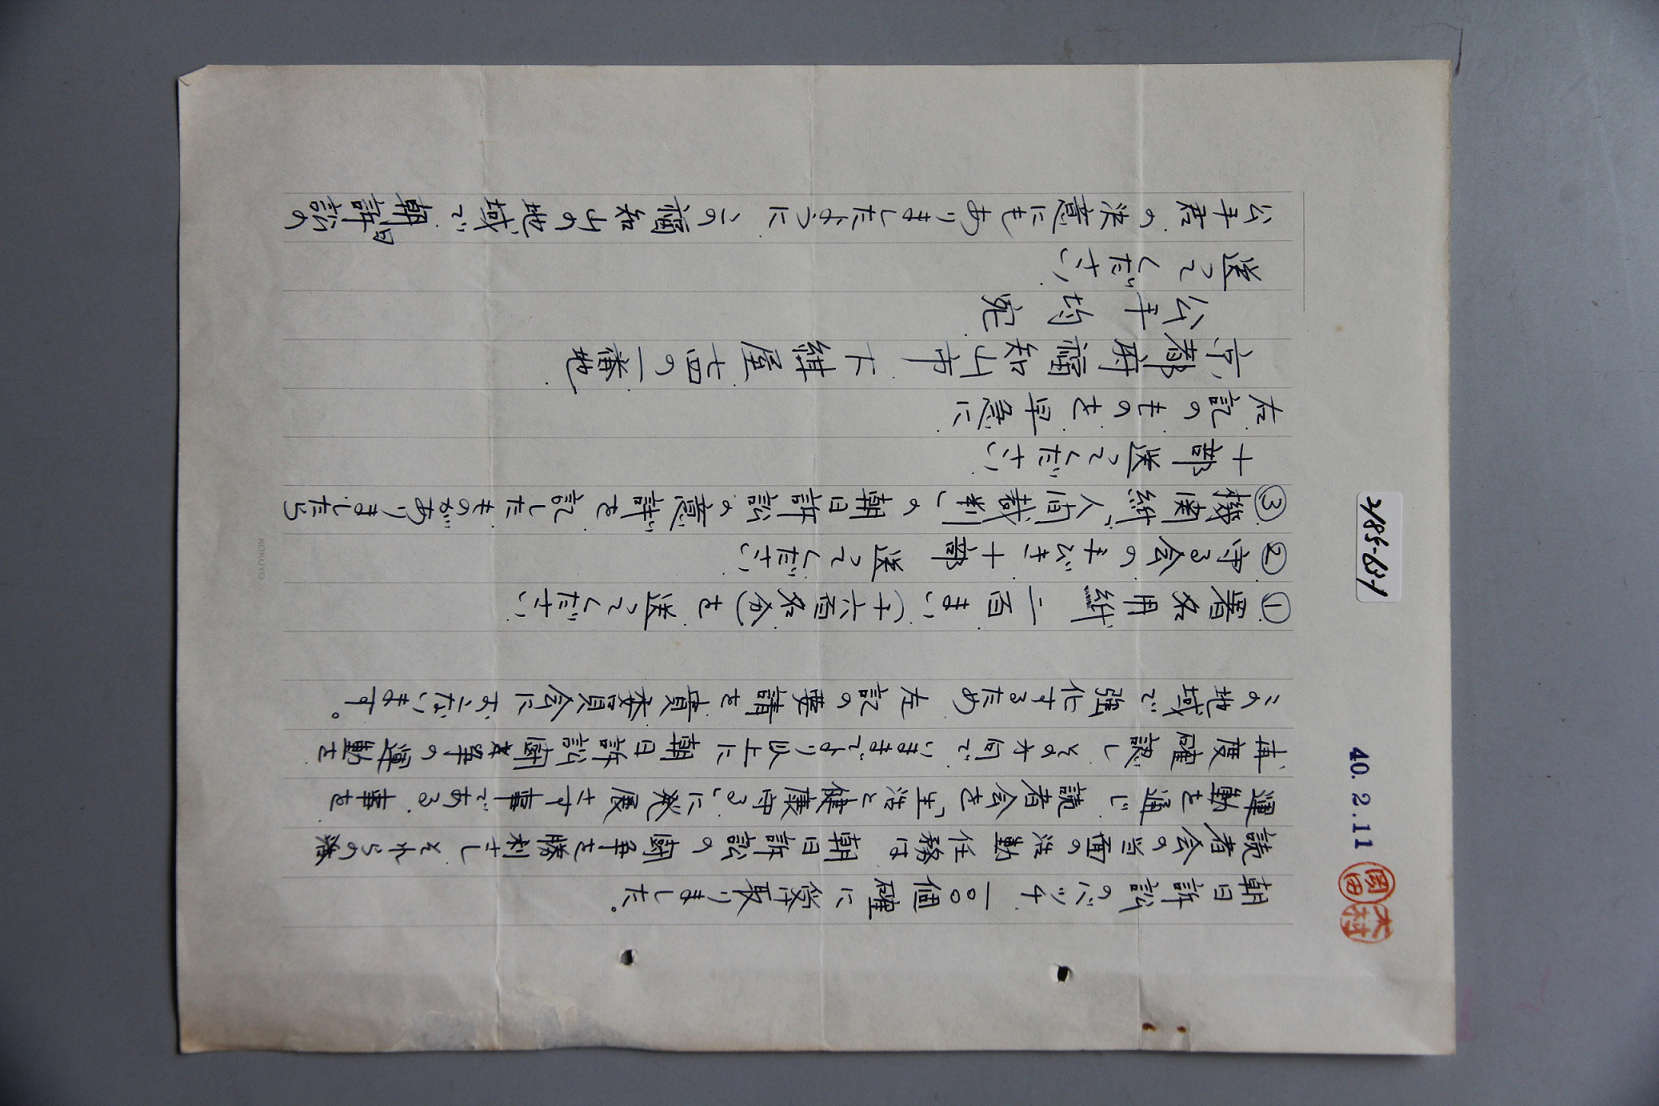 朝日訴訟のバッチ 一〇〇個 確に受取りました。
読者会の当面の活動任務は 朝日訴訟の闘争を勝利さし それらの諸
運動を通じ 読者会を「生活と健康守る」に発展さす事である 事を
再度確認し その方向で いままでより以上に 朝日訴訟闘争の運動を
この地域で強化するため 左記の要請を貴委員会におこないます。
① 署名用紙 二百まい(千六百名分)を送ってください
② 守る会の手びき十部 送ってください
③ 機関紙「人間裁判」の朝日訴訟の意義を記したものがありましたら
十部送ってください
右記のものを早急に
京都府福知山市下紺屋七四の一番地
公平 均 宛
送ってください
公平君の決意にもありましたように、この福知山の地域で 朝日訴訟の
2485-63-1
40. 2. 11
岡田
木村
KOKUYO